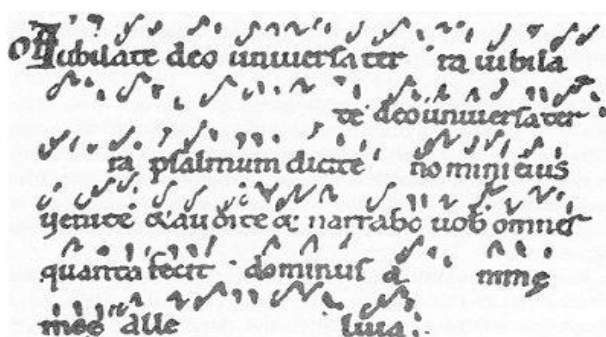 Of Iubilate deo universa ter ra iubila
te deo universa ter
ra psalmum dicite nomini eius
venite & audite & narrabo vob omnes
quanta fecit dominus a nime
mee alle luia.